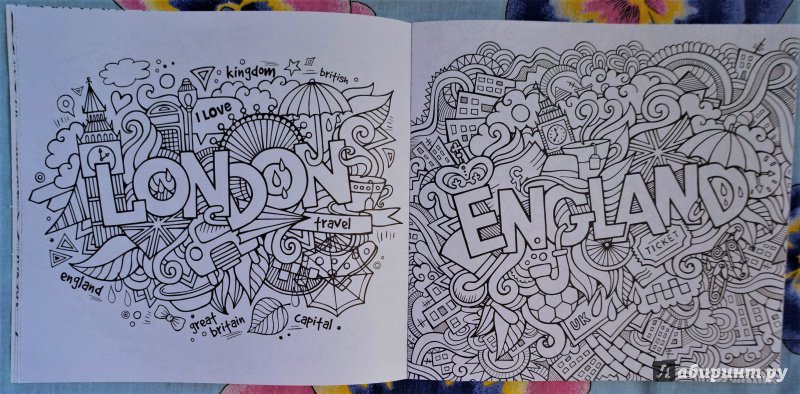 kingdom
british
I LOVE
LONDON
travel
england
great
britain
capital
ENGLAND
TICKET
UK
Лабиринт.ру